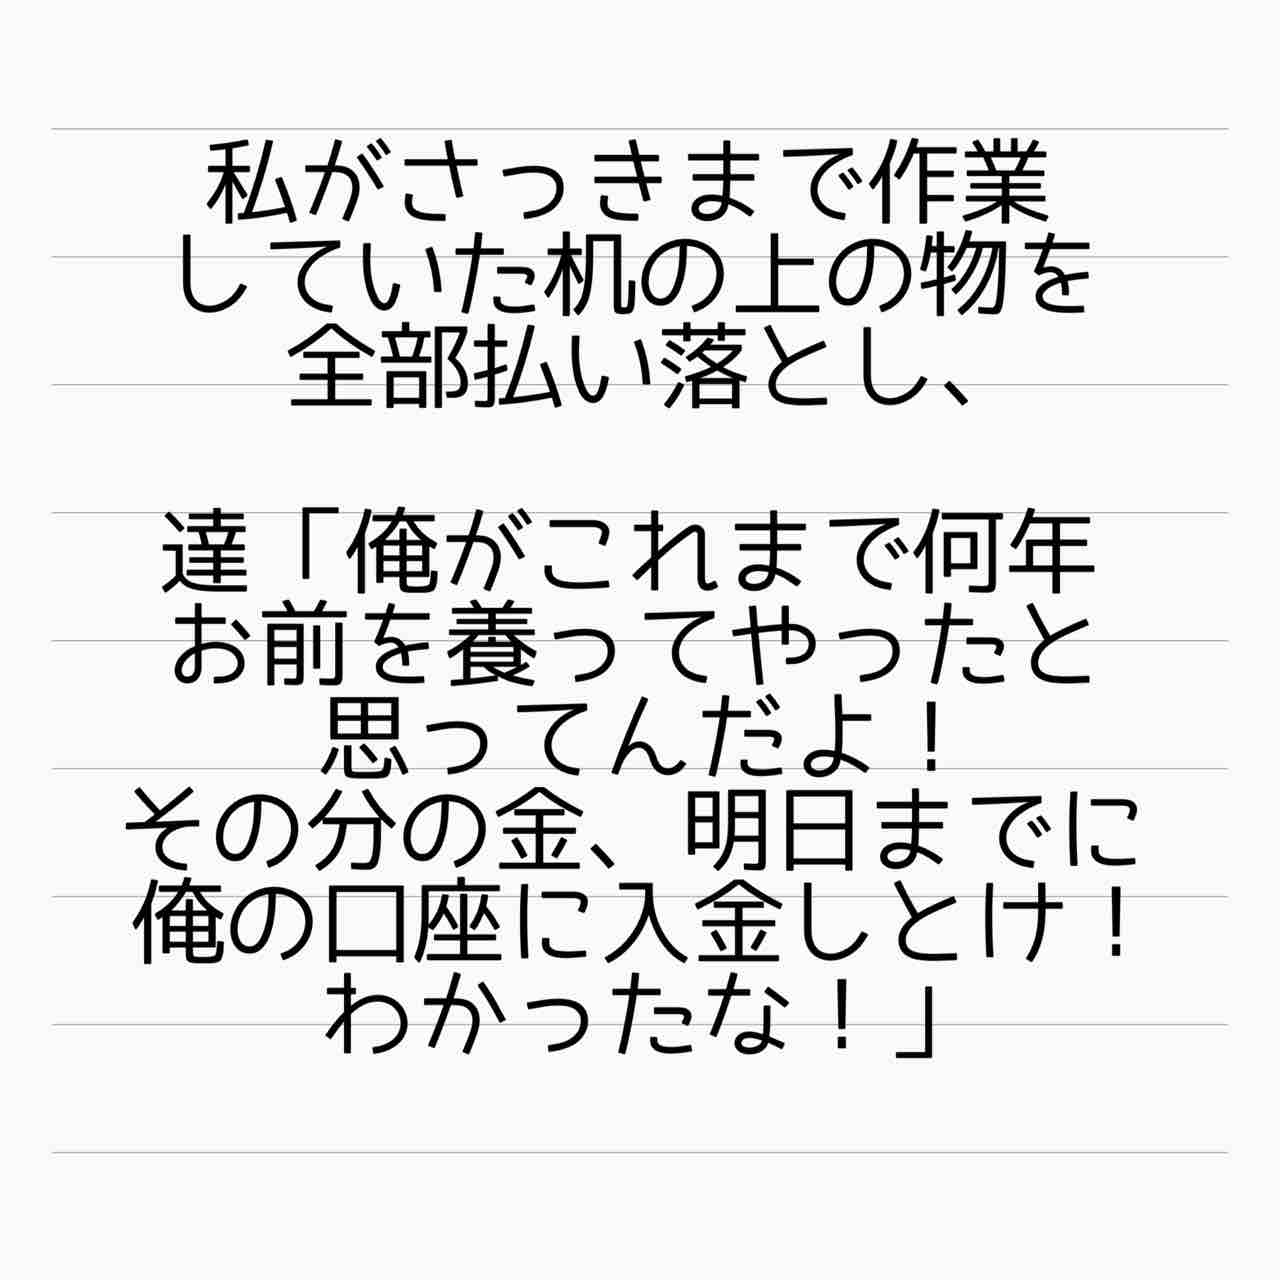 私がさっきまで作業
していた机の上の物を
全部払い落とし、
達「俺がこれまで何年
お前を養ってやったと
思ってんだよ！
その分の金、明日までに
俺の口座に入金しとけ！
わかったな！」